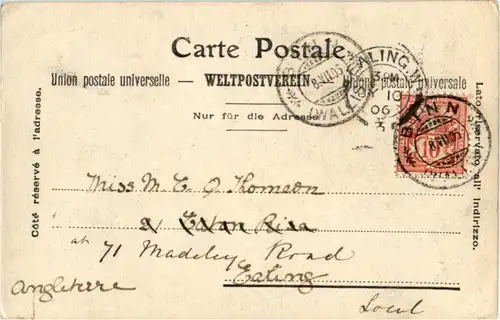 Carte Postale.
Union postale universelle — WELTPOSTVEREIN — Unione postale universale
Nur für die Adresse
Côté réservé à l'adresse.
Lato riservato all' indirizzo.
EALING.W
10
06
BINN
8.VII.06
(WALLIS)
Miss M. C. O Thomson
at 71 Madeley Road
Ealing
Angleterre
Local